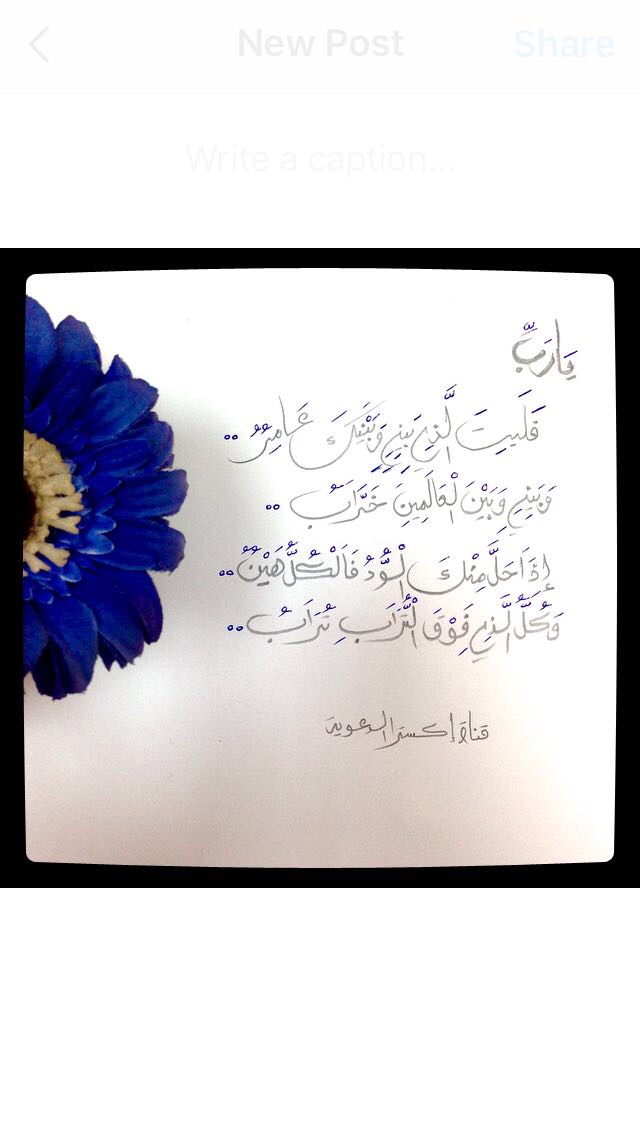 New Post
Share
Write a caption...
يَارَبِّ
فَلَيتَ الَّذِي بَينِي وَبَيْنَكَ عَامِرٌ ..
وَبَينِي وَبَيْنَ الْعَالَمِينَ خَرَابُ ..
إِذَا حَلَّ مِنْكَ الْوُدُّ فَالْكُلُّ هَيْنٌ ..
وَكُلُّ الَّذِي فَوْقَ الْتُّرَابِ تُرَابُ ..
قناة الدعوية